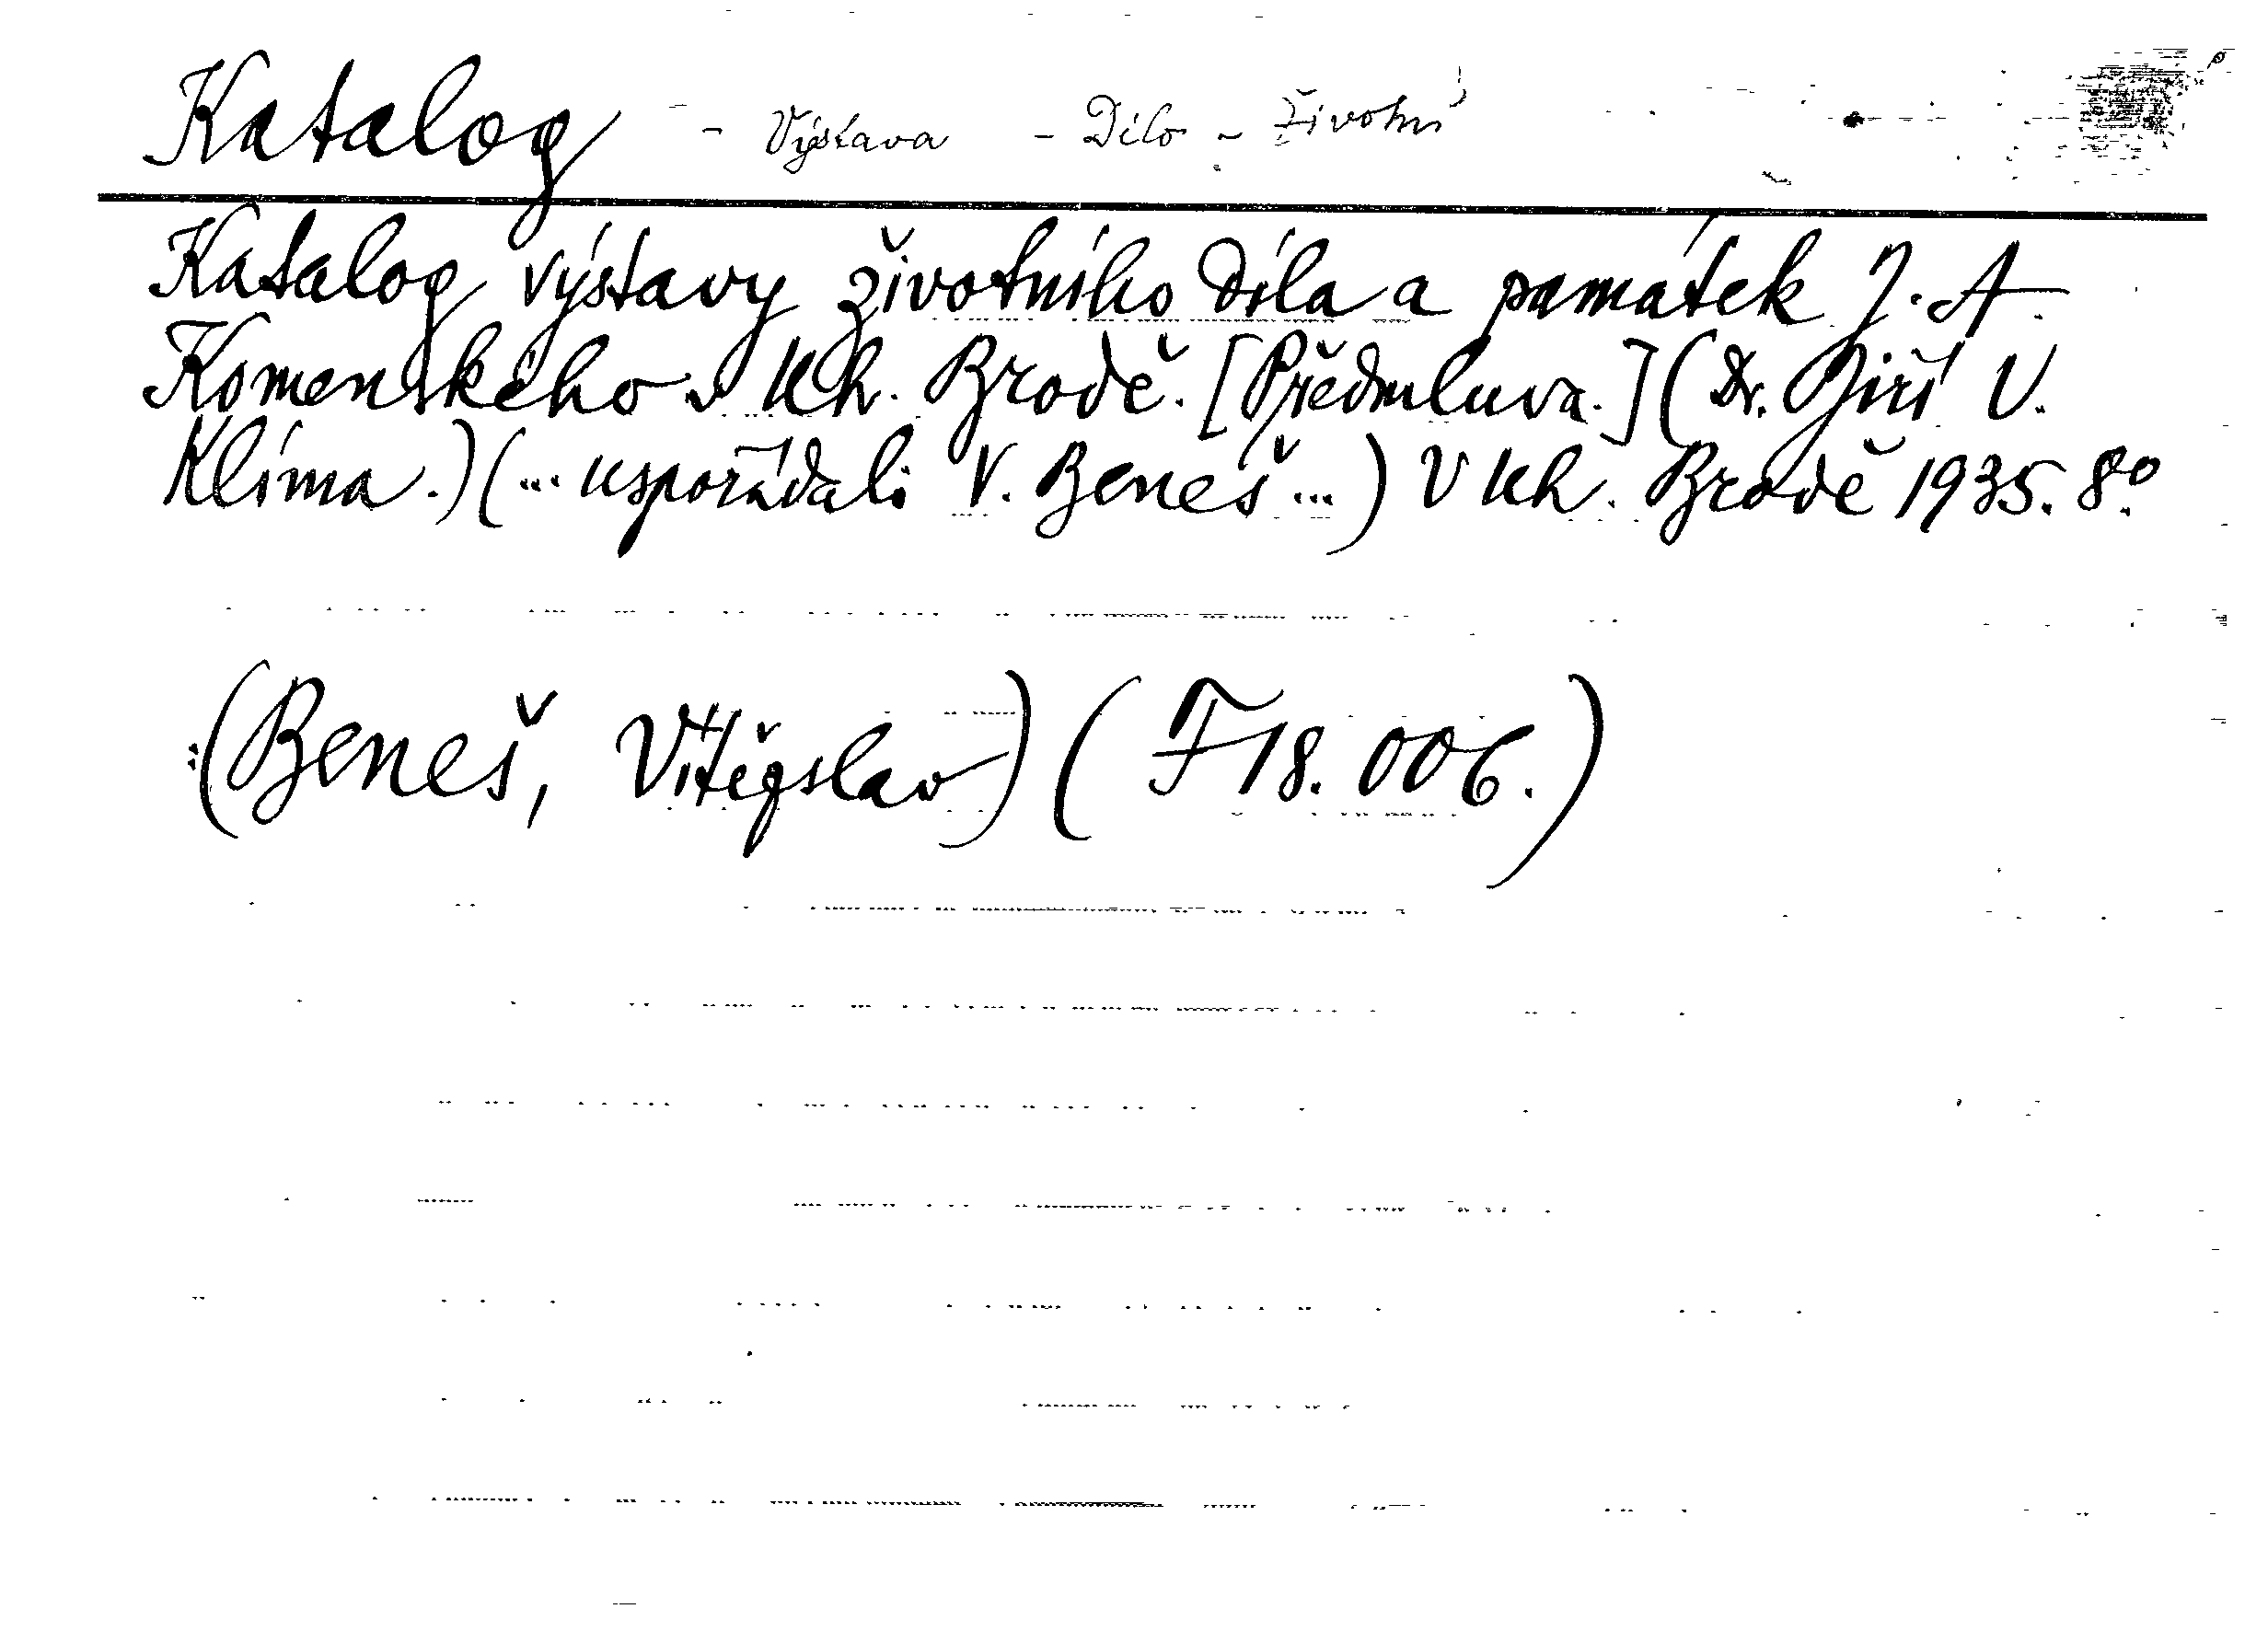 Katalog - Výstava - Dílo - Životní
Katalog výstavy životního díla a památek J. A.
Komenského v Uh. Brodě. [Předmluva.] (Dr. Jiří V.
Klíma.) (... uspořádali V. Beneš ...) V Uh. Brodě 1935. 8°.
(Beneš, Vítězslav) (F 18.006.)